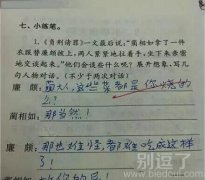 七、小练笔。
1.《负荆请罪》一文最后说:“蔺相如拿了一件
衣服替廉颇披上,两人紧紧地拉着手,坐下来亲密
地交谈起来。”他们会谈些什么呢?展开想象,写几
句人物对话。(不少于两次对话)
廉 颇: 蔺大人,这些菜都是你烧的
么?
蔺相如: 那当然!
廉 颇: 那也难怪,都难吃成这样
了!
蔺相如:
别逗了
www.biedoul.com